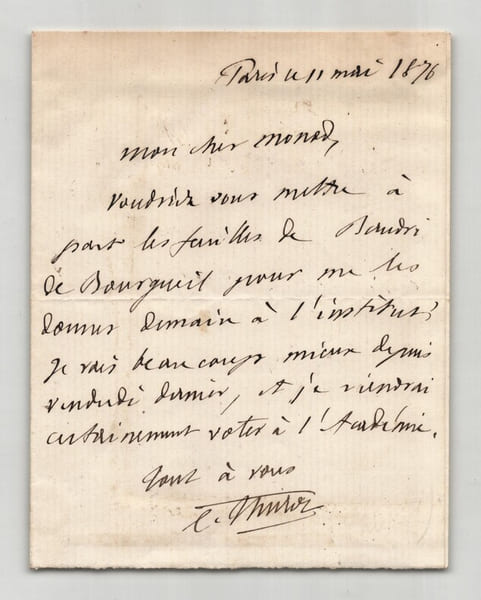 Paris le 11 mai 1876
mon cher monod,
voudriez vous mettre à
part les feuilles de Baudri
de Bourgueil pour me les
donner demain à l'institut,
je vais beaucoup mieux depuis
vendredi dernier, et je viendrai
certainement voter à l'Académie.
tout à vous
C. Thurot